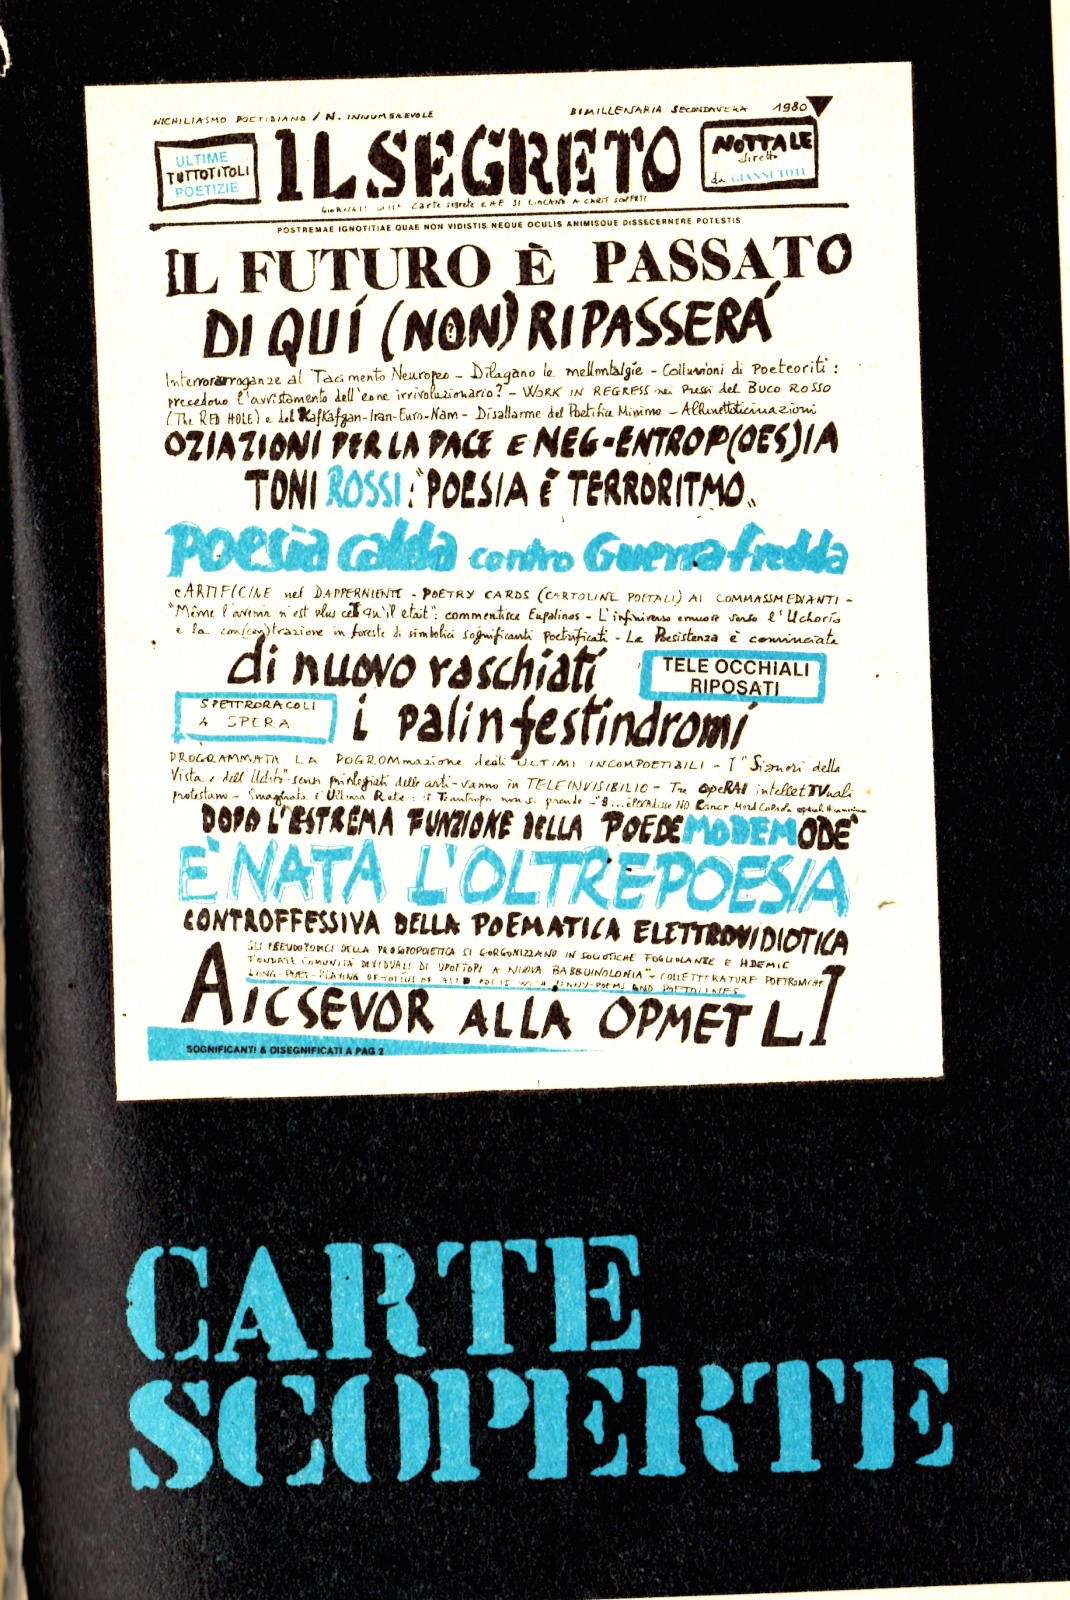 NICHILIASMO POETIDIANO / N. INNUMEREVOLE
BIMILLENARIA SECONDAVERA 1980
ULTIME
TUTTOTITOLI
POETIZIE
IL SEGRETO
NOTTALE
diretto
da GIANNI TOTI
GIORNALE DELLE Carte segrete CHE SI GIOCANO A CARTE SCOPERTE
POSTREMAE IGNOTITIAE QUAE NON VIDISTIS NEQUE OCULIS ANIMISQUE DISSECERNERE POTESTIS
IL FUTURO È PASSATO
DI QUÍ (NON) RIPASSERÁ
Interrorarroganze al Tacimento Neuropeo – Dilagano le mellontalgie – Colluvioni di Poeteoriti :
precedono l'avvistamento dell'eone irrivoluzionario? – WORK IN REGRESS nei Pressi del BUCO ROSSO
(The RED HOLE) e del Kafkafgan-Iran-Euro-Nam – Disallarme del Poetifice Minimo –
OZIAZIONI PER LA PACE E NEG-ENTROP(OES)IA
TONI ROSSI: "POESIA È TERRORITMO"
Poesia calda contro Guerra fredda
CARTIFICINE nel DAPPERNIENTE – POETRY CARDS (CARTOLINE POETALI) AI COMMASSMEDIANTI –
"Même l'avenir n'est plus ce qu'il était": commentisce Eupalinos – L'infiniverso emuore verso l'Uchoria
e la con(cen)trazione in foreste di simbolici sognificanti poetrificati – La Poesistenza è cominciata
di nuovo raschiati
TELE OCCHIALI
RIPOSATI
SPETTRORACOLI
A SPERA
i palinfestindromi
PROGRAMMATA LA POGROMmazione degli ULTIMI INCOMPOETIBILI – I "Signori della
Vista e dell'Udito" sensi privilegiati delle arti – vanno in TELEINVISIBILIO – Tre opeRAI intelletTVuali
protestano – Smagliata l'Ultima Rete : il non si prende –
DOPO L'ESTREMA FUNZIONE DELLA POEDEMODEMODE
È NATA L'OLTREPOESIA
CONTROFFESSIVA DELLA POEMATICA ELETTROVIDIOTICA
GLI PSEUDOPODICI DELLA PROSOPOPOIETICA SI GORGONIZZANO IN SOCIOTICHE FOGLIOLANZE E
FONDATE COMUNITÀ DIVIDUALI DI UPOTTOPI A NUOVA BABBUINOLONIA – COLLETTERATURE POETRONICHE
LONG-POET-PLAYING POETS WITH PENNY-POEMS AND POETOLINES
AICSEVOR ALLA OPMET LI
SOGNIFICANTI & DISEGNIFICATI A PAG 2
CARTE
SCOPERTE